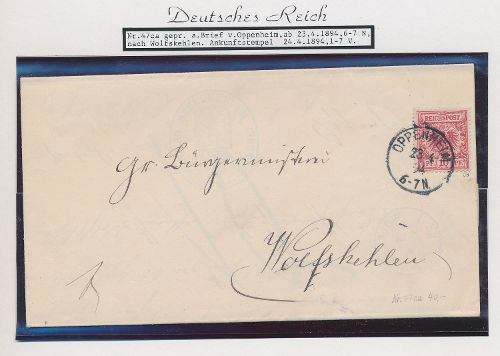 Deutsches Reich
Nr.47ca gepr. a.Brief v.Oppenheim,ab 23.4.1894,6-7 N,
nach Wolfskehlen. Ankunftstempel 24.4.1894,1-7 V.
REICHSPOST
OPPENHEIM
23 4
94
6-7N.
Gr. Bürgermeisterei
Wolfskehlen.
Nr. 47ca 40,-